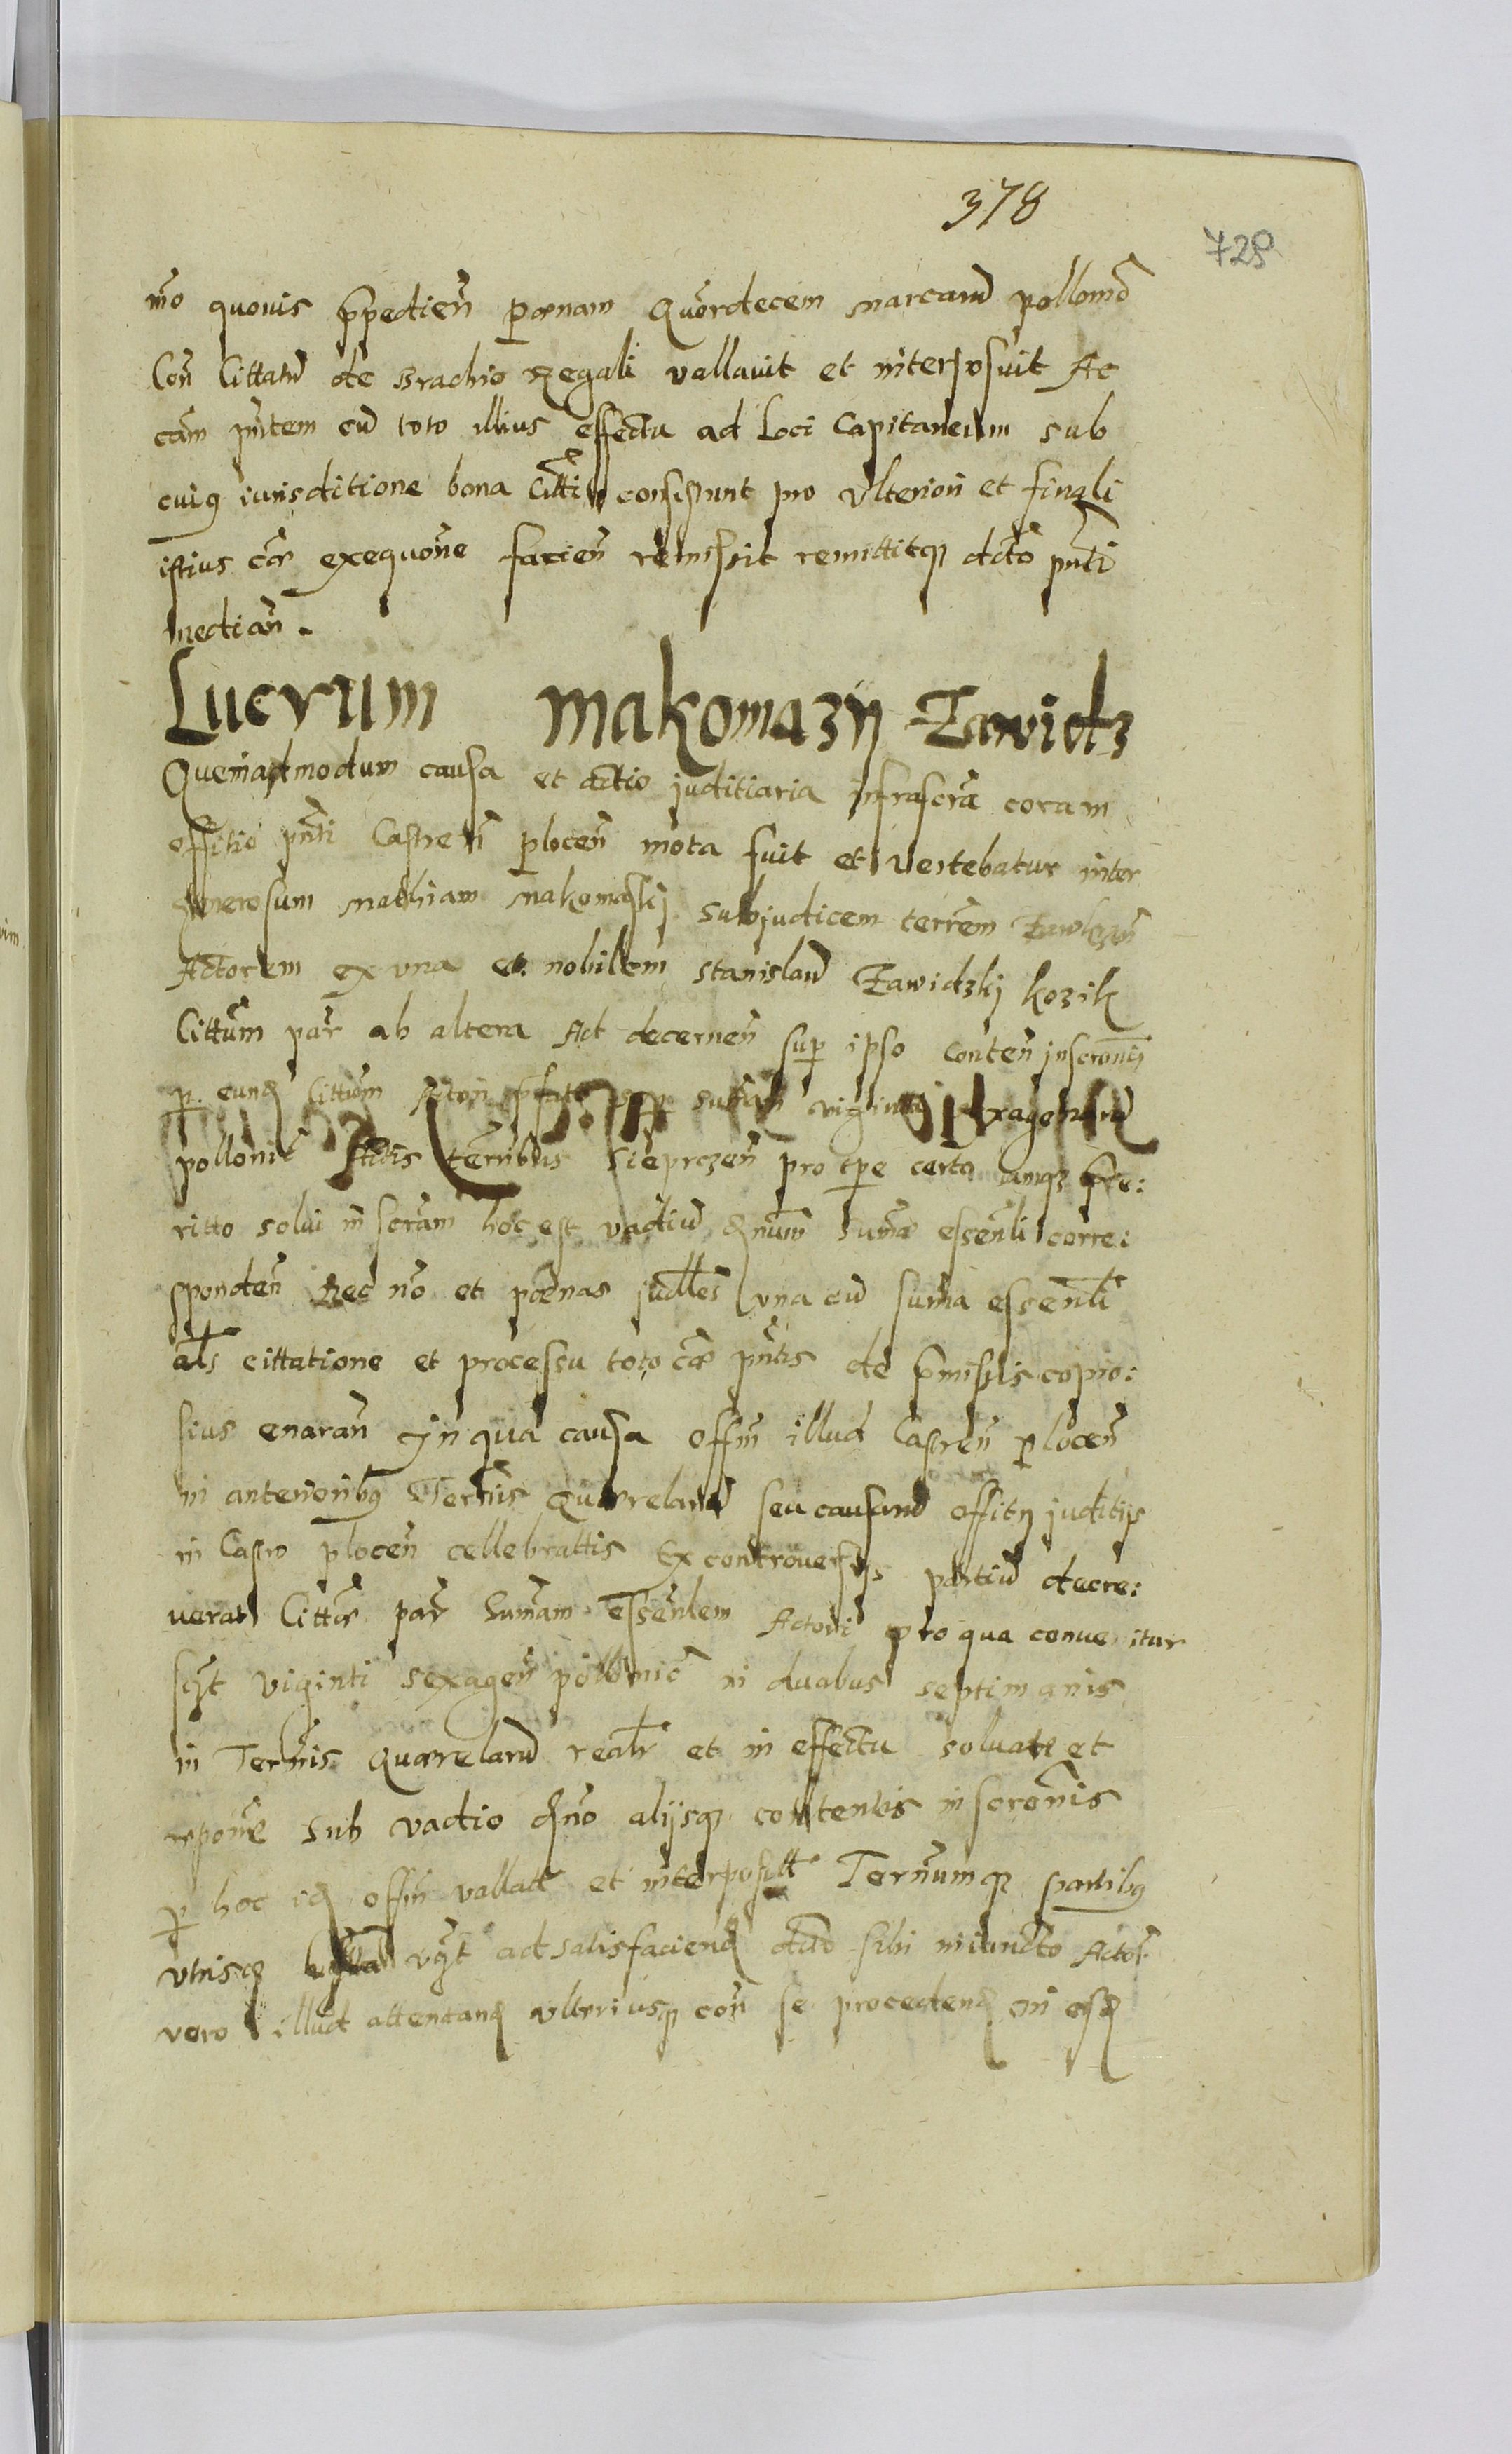 378
728
mo quovis ppedien pœnam Quordecem marcarū pollonic̄
Con Cittatū de Brachio Regali vallavit et interposuit Ac
cām pn̄tem cū toto illius effectu ad loci Capitaneum sub
cuiq iurisditione bona Citti consistunt pro Ulteriori et finali
istius cæ exequōne facien remissit remittitqȝ dcto pn̄ti
median̄.
Lucrum Makomazij Zawidz
Quemadmodum causa et actio juditiaria infrascrā coram
offitio pn̄ti Castren̄ plocen̄ mota fuit et Vertebatur inter
generosum Mathiam Makomaskj Subjudicem terrēm Zawkzn̄
Actorem ex una et nobilem Stanislaū Zawidzkj kozik
Cittum par̄ ab altera Act decernen̄ sup ipso conten̄ inscronis
p. eunḏ Cittūm Actori pfato sup sumam viginti sexagenarū
pollonic̄ Actis terribus Sieprczen̄ pro tpe certo iamqȝ pte:
ritto solui inscram hoc est vadiū qnum Sumæ essenli corre:
sponden̄ Nec nō et pœnas judlēs una cū suma essenli
als cittatione et processu toto cæ pn̄tis de pmissis copio:
sius enaran̄ Jn qua causa offm illud Castren̄ plocen̄
in anterioribȝ Termis Quærelarū seu causarū offity juditijs
in Castro plocen̄ cellebrattis Ex controversijs partiū decre:
verat Citta par̄ Sumam essenlem Actori pro qua convenitur
sct viginti sexagen̄ pollonic̄ in duabus septimanis
in Termis Quærelarū realr̄ et in effectu solvate et
repone sub vadio qno alijsqȝ contentis inscronis
p hoc iḏ offm vallatt et interposıtt Termumqȝ partibȝ
utrisqȝ vgt ad satisfacienḏ dcto sibi iniuncto Actor
vero illud attentanḏ ulteriusqȝ con̄ se procedenḏ in eisḏ